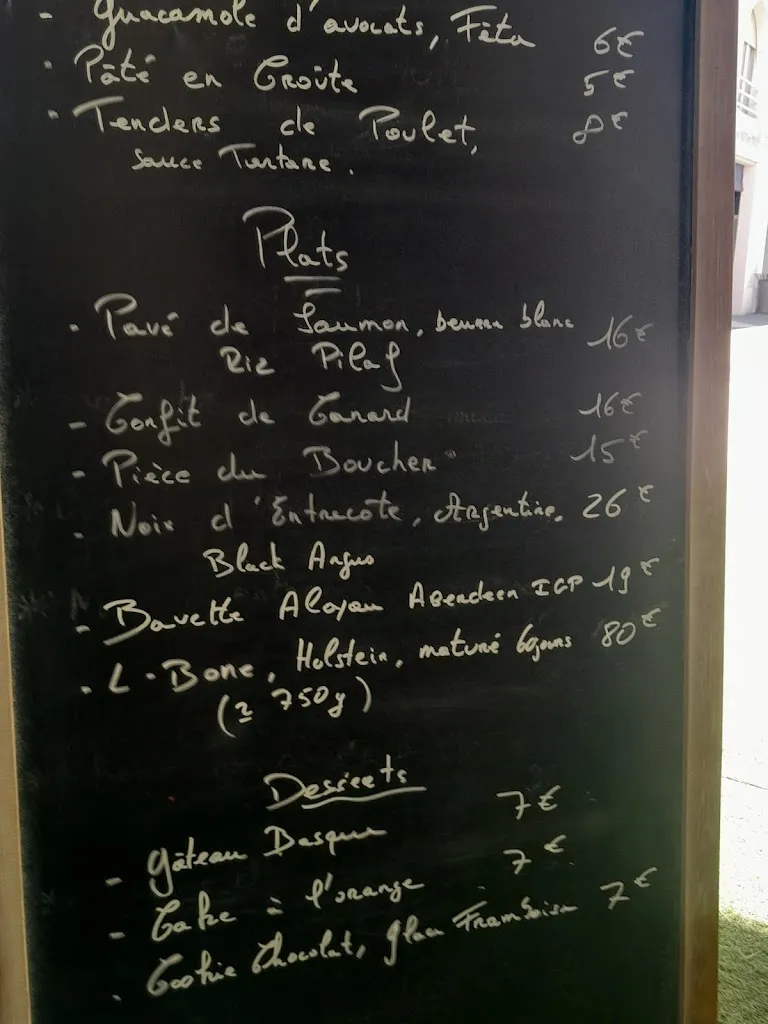 - Guacamole d'avocats, Féta 6€
- Pâté en Croûte 5€
- Tenders de Poulet, 8€
sauce Tartare.
Plats
- Pavé de Saumon, beurre blanc 16€
Riz Pilaf
- Confit de Canard 16€
- Pièce du Boucher 15€
- Noix d'Entrecote, Argentine, 26€
Black Angus
- Bavette Aloyau Aberdeen IGP 19€
- L-Bone, Holstein, maturé 60jours 80€
(≃ 750g)
Desserts
- gâteau Basque 7€
- Cake à l'orange 7€
- Cookie Chocolat, glace Framboise 7€